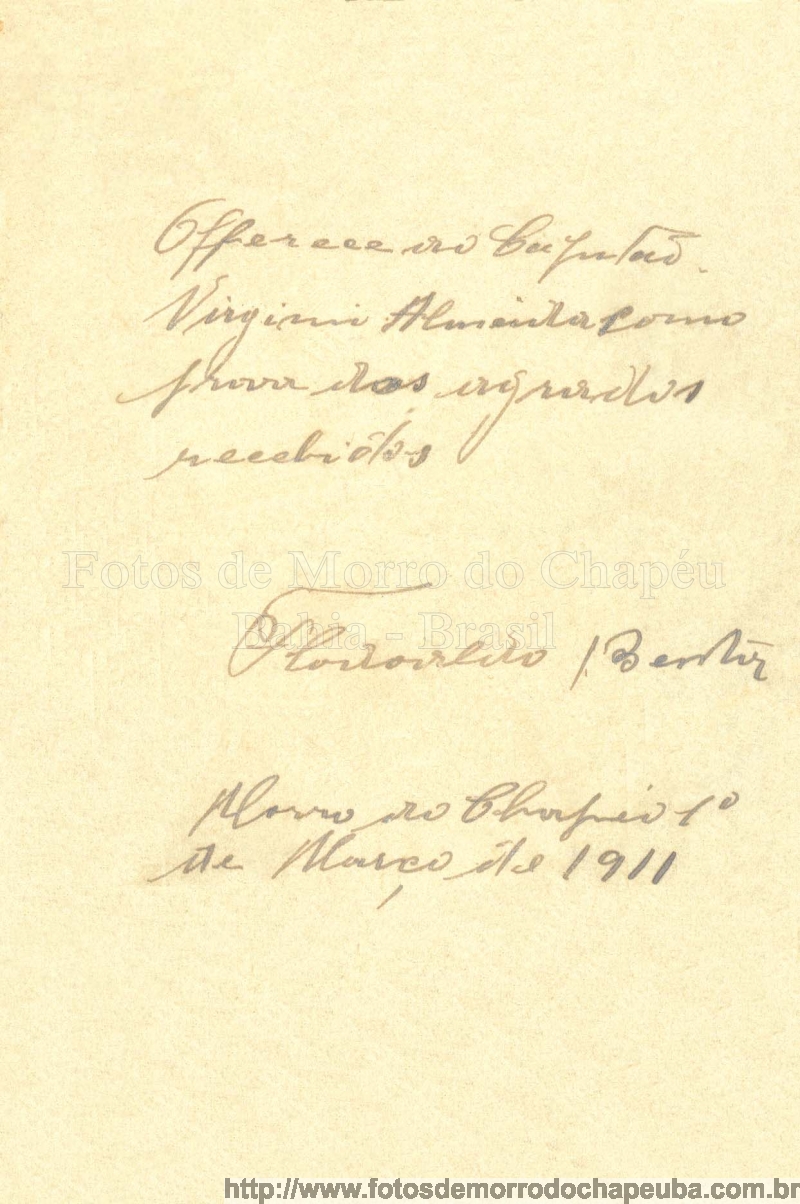 Offerece ao Capitão
Virginio Almeida como
prova dos agrados
recebidos
Fotos de Morro do Chapéu
Bahia - Brasil
Flodoaldo Bentto
Morro do Chapéo 1º
de Março de 1911
http://www.fotosdemorrodochapeuba.com.br